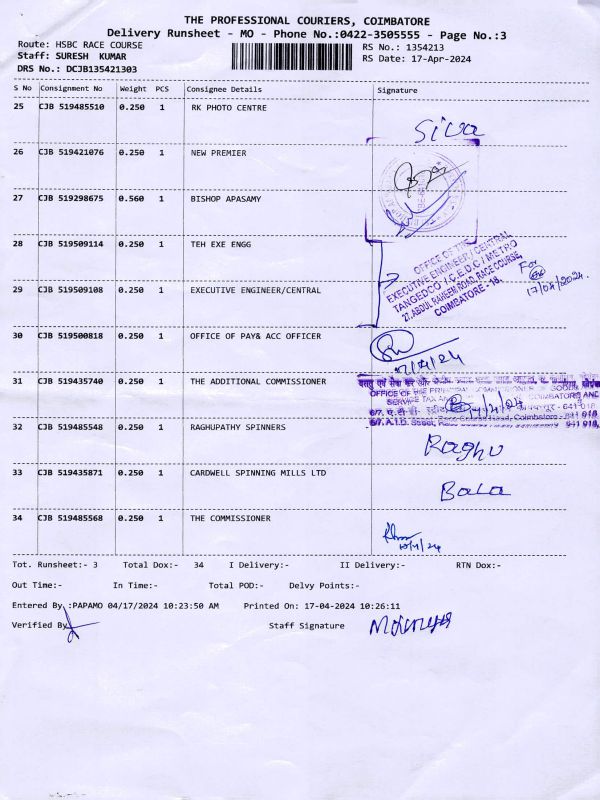 THE PROFESSIONAL COURIERS, COIMBATORE
Delivery Runsheet - MO - Phone No.:0422-3505555 - Page No.:3
Route: HSBC RACE COURSE
RS No.: 1354213
Staff: SURESH KUMAR
RS Date: 17-Apr-2024
DRS No.: DCJB135421303
S No Consignment No Weight PCS Consignee Details Signature
25 CJB 519485510 0.250 1 RK PHOTO CENTRE
Siva
26 CJB 519421076 0.250 1 NEW PREMIER
27 CJB 519298675 0.560 1 BISHOP APASAMY
28 CJB 519509114 0.250 1 TEH EXE ENGG
OFFICE OF THE
EXECUTIVE ENGINEER / CENTRAL
TANGEDCO / C.E.D.C / METRO
27, ABDUL RAHEEM ROAD, RACE COURSE,
COIMBATORE - 18.
For
17/04/2024.
29 CJB 519509108 0.250 1 EXECUTIVE ENGINEER/CENTRAL
30 CJB 519500818 0.250 1 OFFICE OF PAY& ACC OFFICER
31 CJB 519435740 0.250 1 THE ADDITIONAL COMMISSIONER
OFFICE OF THE
SERVICE TAX COIMBATORE
641 018
6/7, A.T.D. Street, Race Coimbatore - 641 018
32 CJB 519485548 0.250 1 RAGHUPATHY SPINNERS
Raghu
33 CJB 519435871 0.250 1 CARDWELL SPINNING MILLS LTD
Bala
34 CJB 519485568 0.250 1 THE COMMISSIONER
Tot. Runsheet:- 3 Total Dox:- 34 I Delivery:- II Delivery:- RTN Dox:-
Out Time:- In Time:- Total POD:- Delvy Points:-
Entered By :PAPAMO 04/17/2024 10:23:50 AM Printed On: 17-04-2024 10:26:11
Verified By Staff Signature